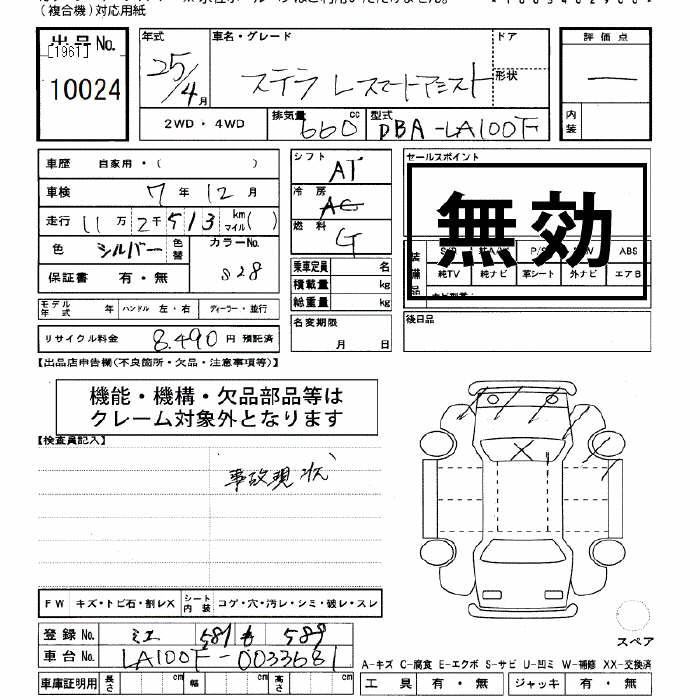 (複合機)対応用紙
出品No.
[1961]
10024
年式
25/4月
車名・グレード
ステラ Lスマートアシスト
ドア
形状
評価点
—
内装
2WD・4WD
排気量 660 cc
型式 DBA-LA100F
車歴 自家用・( )
車検 7年12月
走行 11万2千513 km マイル( )
色 シルバー 色替 カラーNo. S28
保証書 有・無
モデル年式 年 ハンドル 左・右 ディーラー・並行
リサイクル料金 8,490円 預託済
シフト AT
冷房 AC
燃料 G
乗車定員 名
積載量 kg
総重量 kg
名変期限
月 日
セールスポイント
無効
ABS
純TV 純ナビ 革シート 外ナビ エアB
後日品
【出品店申告欄(不良箇所・欠品・注意事項等)】
機能・機構・欠品部品等は
クレーム対象外となります
【検査員記入】
事故現状
FW キズ・トビ石・割レX シート内装 コゲ・穴・汚レ・シミ・破レ・スレ
登録No. ミエ 581 も 589
車台No. LA100F-0033681
車庫証明用 長さ cm 幅 cm 高さ cm
スペア
A-キズ C-腐食 E-エクボ S-サビ U-凹ミ W-補修 XX-交換済
工具 有・無 ジャッキ 有・無